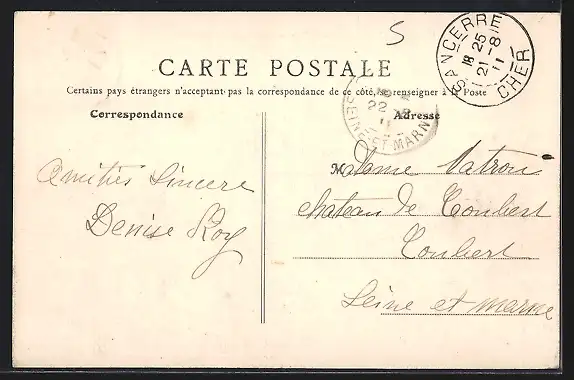 5
SANCERRE
18 25
21 - 8
11
CHER
CARTE POSTALE
Certains pays étrangers n'acceptant pas la correspondance de ce côté, se renseigner à la Poste
22
SEINE-ET-MARNE
Correspondance
Adresse
Amitiés Sincère
Denise Roy
Madame Vatrou
chateau de Coubert
Coubert
Seine et marne